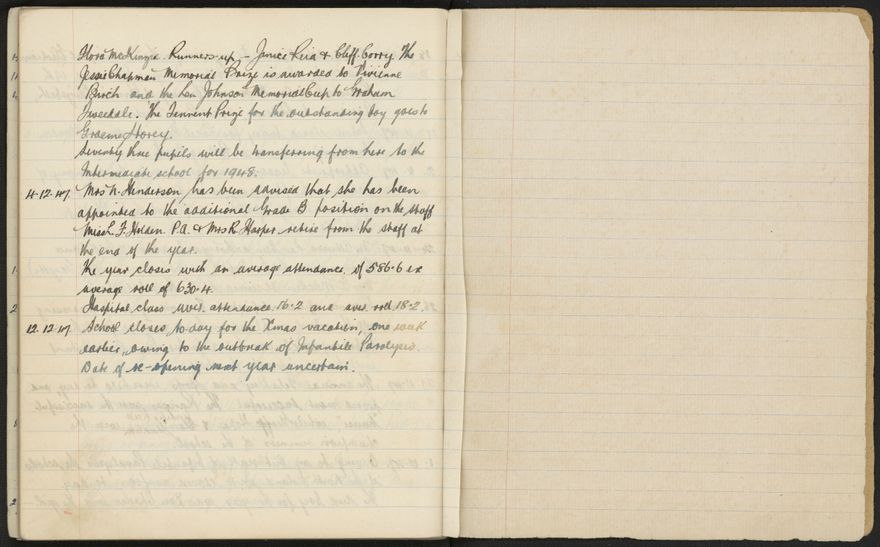 Flora McKenzie. Runners-up - Janice Reid & Cliff Corry. The
Jessie Chapman Memorial Prize is awarded to Vivienne
Birch and the Len Johnson Memorial Cup to Graham
Tweedale. The Tennent Prize for the outstanding boy goes to
Graeme Storey.
Seventy three pupils will be transferring from here to the
Intermediate school for 1948.
4.12.47. Mrs N. Henderson has been advised that she has been
appointed to the additional Grade B position on the staff
Miss L. F. Holden P.A. & Mrs R. Harper retire from the staff at
the end of the year.
The year closes with an average attendance of 586.6 ex
average roll of 630.4.
Hospital class aver. attendance 16.2 and aver. roll 18.2.
12.12.47 School closes to-day for the Xmas vacation, one week
earlier, owing to the outbreak of Infantile Paralysis.
Date of re-opening next year uncertain.